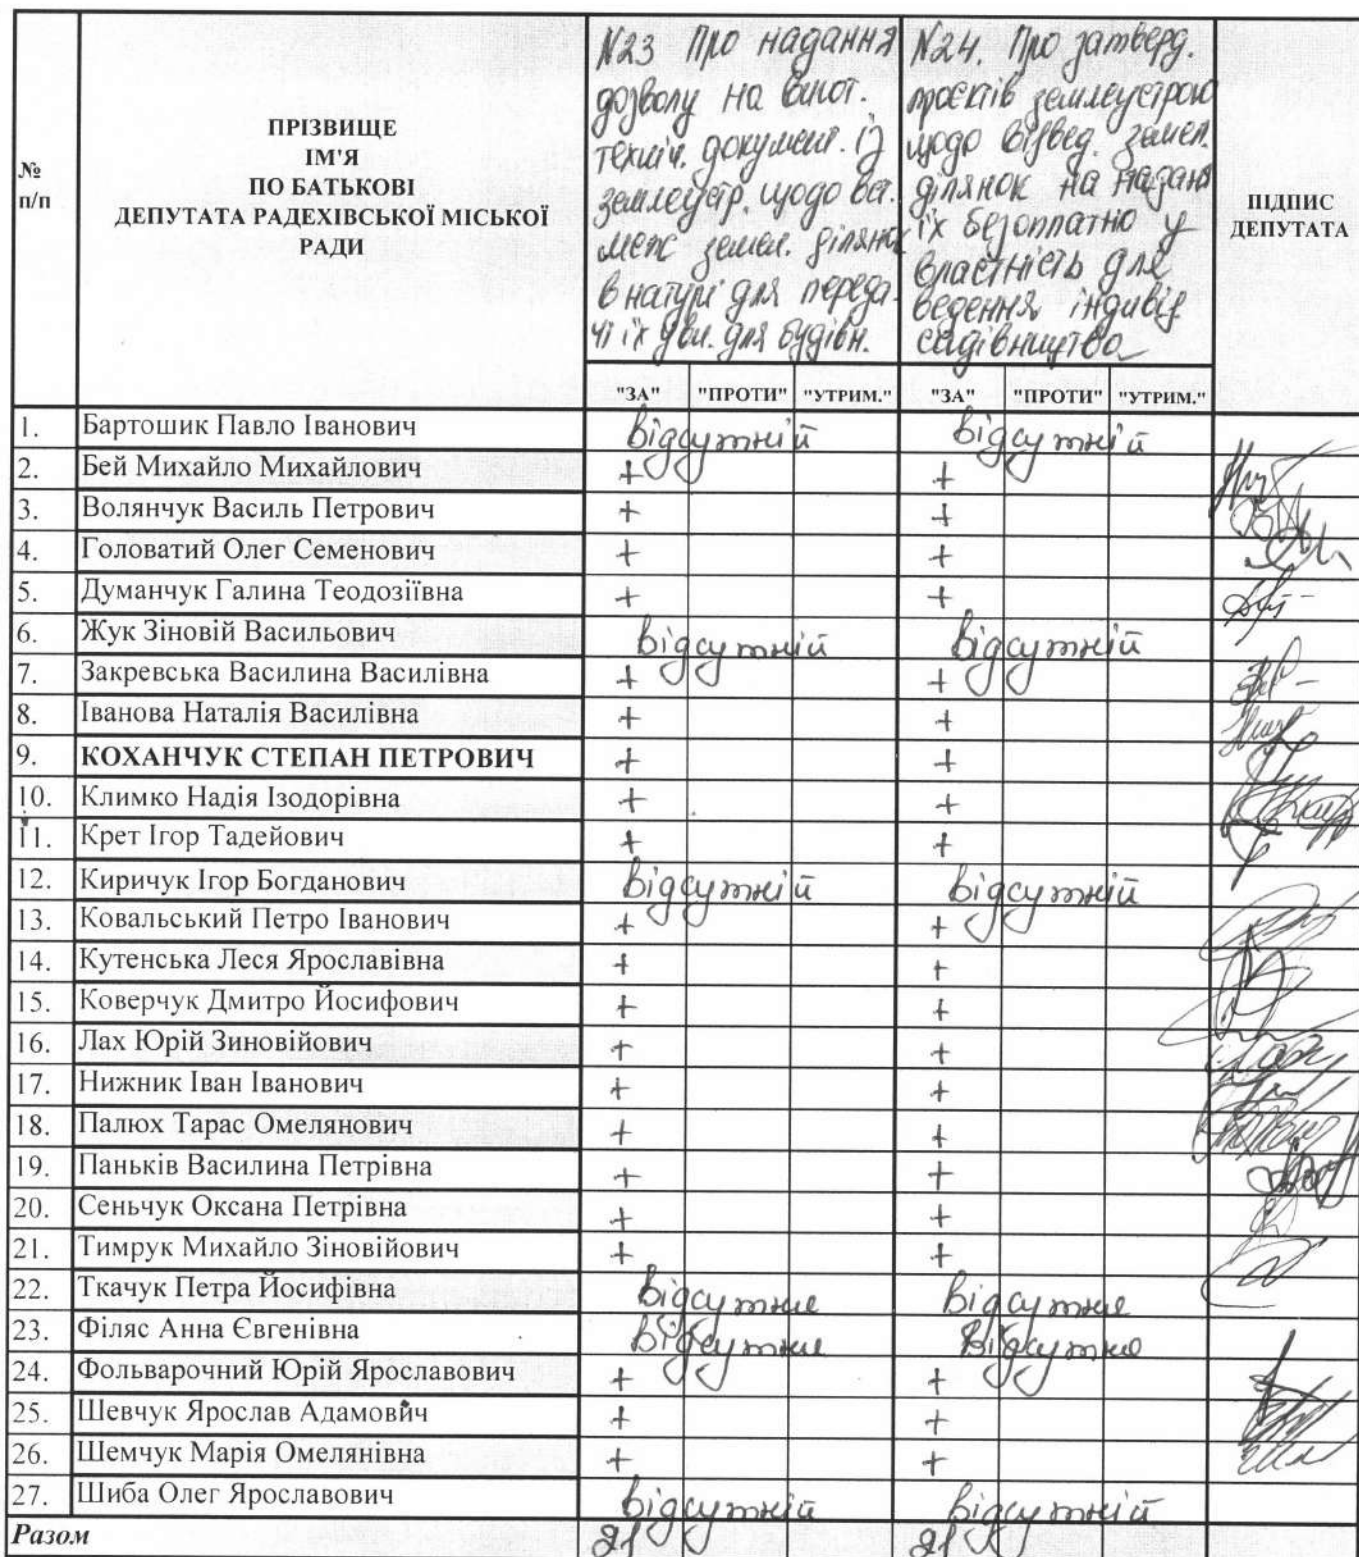 № п/п
ПРІЗВИЩЕ
ІМ'Я
ПО БАТЬКОВІ
ДЕПУТАТА РАДЕХІВСЬКОЇ МІСЬКОЇ
РАДИ
N23 Про надання
дозволу на вигот.
техніч. документ. із
землеустр. щодо вст.
меж земел. ділянок
в натурі для переда-
чі їх у вл. для будівн.
N24. Про затверд.
проєктів землеустрою
щодо відвед. земел.
ділянок на надан
їх безоплатно у
власність для
ведення індивід
садівництва
ПІДПИС
ДЕПУТАТА
"ЗА" "ПРОТИ" "УТРИМ." "ЗА" "ПРОТИ" "УТРИМ."
1. Бартошик Павло Іванович відсутній відсутній
2. Бей Михайло Михайлович + +
3. Волянчук Василь Петрович + +
4. Головатий Олег Семенович + +
5. Думанчук Галина Теодозіївна + +
6. Жук Зіновій Васильович відсутній відсутній
7. Закревська Василина Василівна + +
8. Іванова Наталія Василівна + +
9. КОХАНЧУК СТЕПАН ПЕТРОВИЧ + +
10. Климко Надія Ізодорівна + +
11. Крет Ігор Тадейович + +
12. Киричук Ігор Богданович відсутній відсутній
13. Ковальський Петро Іванович + +
14. Кутенська Леся Ярославівна + +
15. Коверчук Дмитро Йосифович + +
16. Лах Юрій Зиновійович + +
17. Нижник Іван Іванович + +
18. Палюх Тарас Омелянович + +
19. Паньків Василина Петрівна + +
20. Сеньчук Оксана Петрівна + +
21. Тимрук Михайло Зіновійович + +
22. Ткачук Петра Йосифівна відсутня відсутня
23. Філяс Анна Євгенівна відсутня відсутня
24. Фольварочний Юрій Ярославович + +
25. Шевчук Ярослав Адамович + +
26. Шемчук Марія Омелянівна + +
27. Шиба Олег Ярославович відсутній відсутній
Разом 21 21